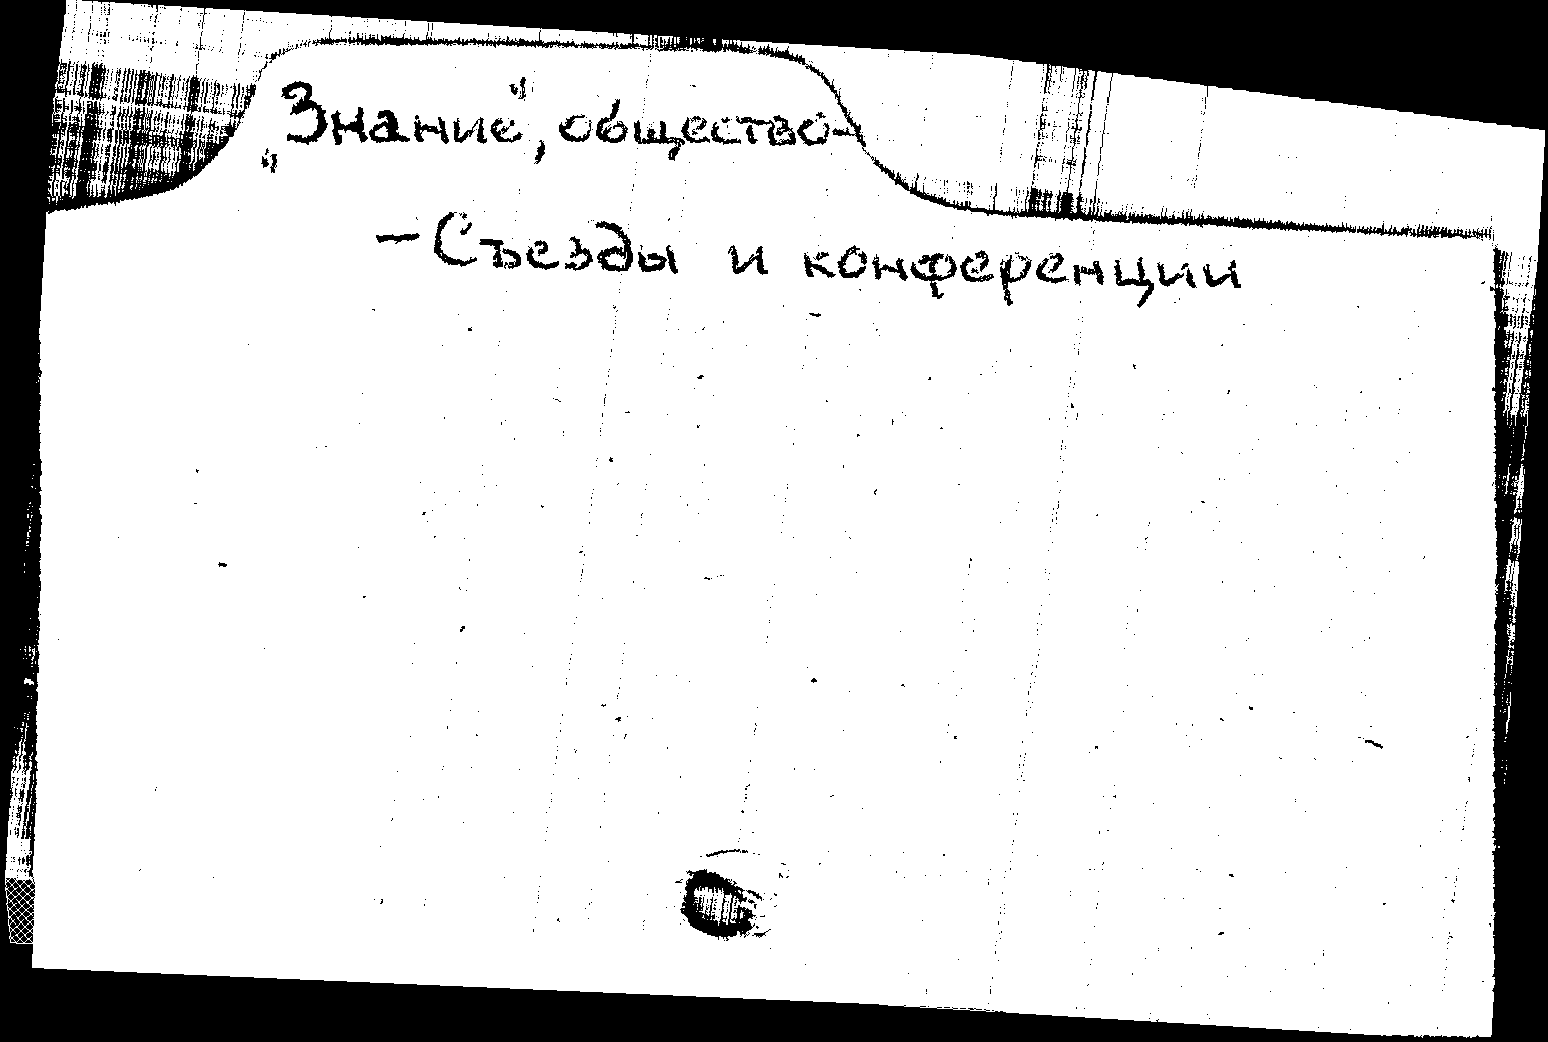 „Знание“, общество-
- Съезды и конференции